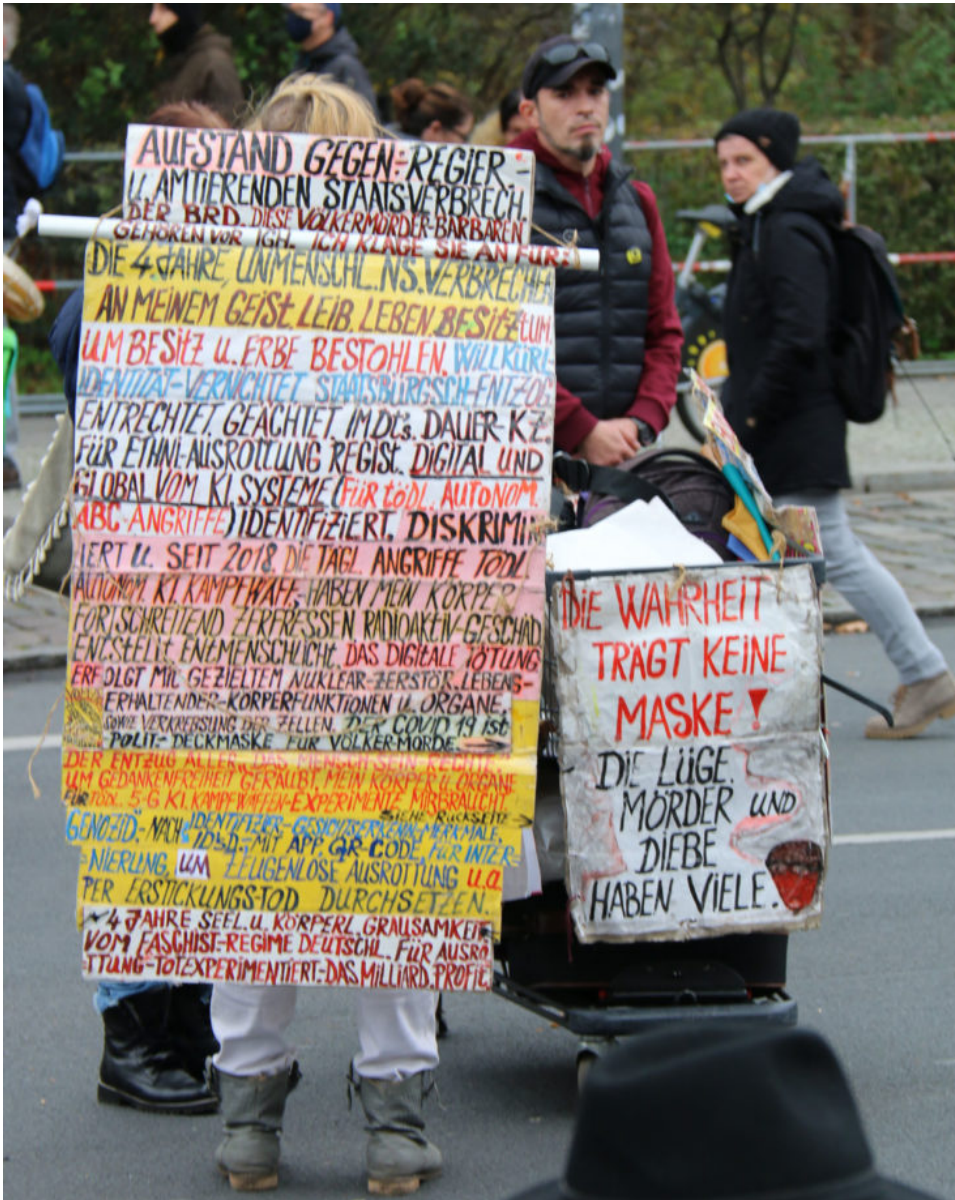 AUFSTAND GEGEN:-REGIER-
U. AMTIERENDEN STAATSVERBRECH.
DER BRD. DIESE VÖLKERMÖRDER-BARBAREN
GEHÖREN VOR IGH. ICH KLAGE SIE AN FÜR:
DIE 4. JAHRE, UNMENSCHL. NS. VERBRECHEN
AN MEINEM GEIST. LEIB. LEBEN. BESITZTUM.
UM BESITZ U. ERBE BESTOHLEN. WILLKÜRL
IDENTITÄT-VERNICHTET STAATSBÜRGSCH-ENTZOG
ENTRECHTET. GEÄCHTET. IM Dts. DAUER-KZ.
FÜR ETHNI-AUSROTTUNG REGIST. DIGITAL UND
GLOBAL VOM KI. SYSTEME (FÜR TÖDL. AUTONOM.
ABC-ANGRIFFE) IDENTIFIZIERT. DISKRIMIN
IERT U. SEIT 2018. DIE TÄGL. ANGRIFFE TÖDL.
AUTONOM. KI. KAMPFWAFF,- HABEN MEIN KÖRPER
FORTSCHREITEND ZERFRESSEN RADIOAKTIV-GESCHÄD
ENTSTELLT ENTMENSCHLICHT. DAS DIGITALE TÖTUNG
ERFOLGT MIT GEZIELTEM NUKLEAR-ZERSTÖR. LEBENS-
ERHALTENDER-KÖRPERFUNKTIONEN U. ORGANE.
SOWIE VERKREBSUNG DER ZELLEN. DER COVID 19 IST
POLIT- DECKMASKE FÜR VÖLKER-MORDE
DER ENTZUG ALLER DAS MENSCH-SEIN RECHTE-
UM GEDANKENFREIHEIT GERAUBT MEIN KÖRPER U. ORGANE
FÜR TÖDL. 5-G KI. KAMPFWAFFEN-EXPERIMENTE MIßBRAUCHT
SIEHE RÜCKSEITE
GENOZID.- NACH IDENTIFIZIER-GESICHTSERKENN-MERKMALE,
MIT APP. QR-CODE, FÜR INTER-
NIERUNG, UM ZEUGENLÖSE AUSROTTUNG u.a
PER ERSTICKUNGS-TOD DURCHSETZEN.
4 JAHRE SEEL. U. KÖRPERL. GRAUSAMKEIT
VOM FASCHIST-REGIME DEUTSCHL. FÜR AUSRO
TTUNG-TOTEXPERIMENTIERT-DAS MILLIARD. PROFIT.
DIE WAHRHEIT
TRÄGT KEINE
MASKE!
DIE LÜGE.
MÖRDER UND
DIEBE
HABEN VIELE.